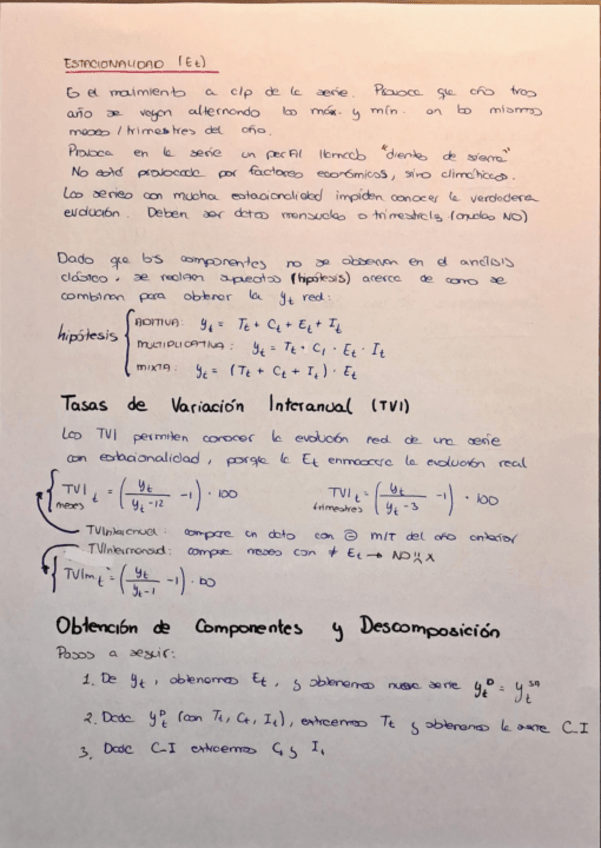 ESTACIONALIDAD (Et)
Es el movimiento a c/p de la serie. Provoca que año tras
año se vayan alternando los máx. y mín. en los mismos
meses / trimestres del año.
Provoca en la serie un perfil llamado "dientes de sierra"
No está provocada por factores económicos, sino climáticos.
Las series con mucha estacionalidad impiden conocer la verdadera
evolución. Deben ser datos mensuales o trimestrales (anuales NO)
Dado que los componentes no se observan en el análisis
clásico, se realizan supuestos (hipótesis) acerca de como se
combinan para obtener la yt real:
hipótesis
ADITIVA: yt = Tt + Ct + Et + It
MULTIPLICATIVA: yt = Tt · Ct · Et · It
MIXTA: yt = (Tt + Ct + It) · Et
Tasas de Variación Interanual (TVI)
Las TVI permiten conocer la evolución real de una serie
con estacionalidad, porque la Et enmascara la evolución real
TVI t meses = (yt / yt-12 - 1) · 100 TVI t trimestres = (yt / yt-3 - 1) · 100
TVInteranual: compara un dato con = M/T del año anterior
TVIntermensual: compara meses con ≠ Et → NO!! X
TVIm t = (yt / yt-1 - 1) · 100
Obtención de Componentes y Descomposición
Pasos a seguir:
1. De yt, obtenemos Et, y obtenemos nueva serie ytD = ytSA
2. Dada ytD (con Tt, Ct, It), extraemos Tt y obtenemos la serie C-I
3. Dada C-I extraemos Ct y It